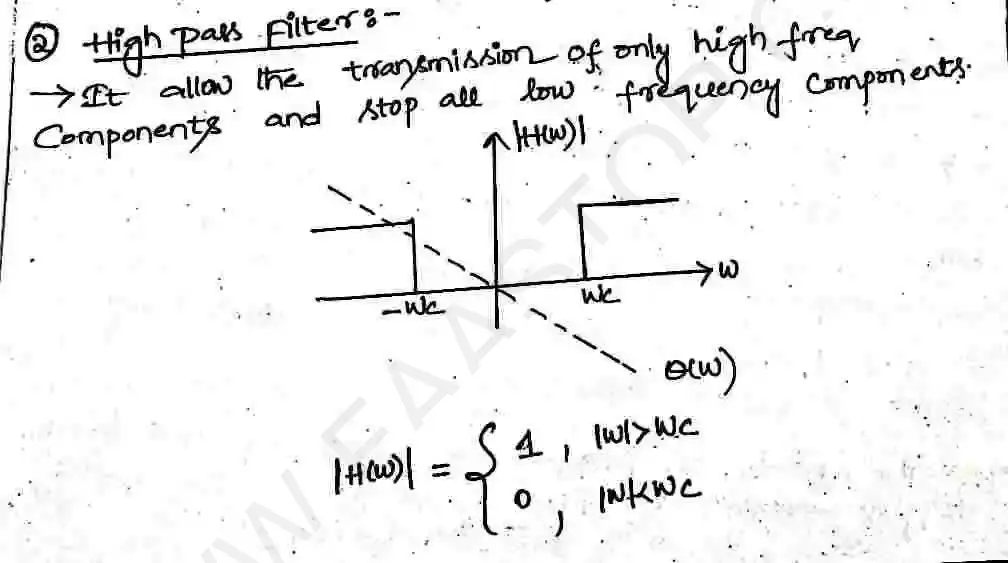 ② High pass Filter :-
→ It allow the transmission of only high freq
Components and stop all low frequency components.
|H(w)|
w
-wc
wc
θ(w)
|H(w)| = { 1 , |w|>wc
0 , |w|<wc